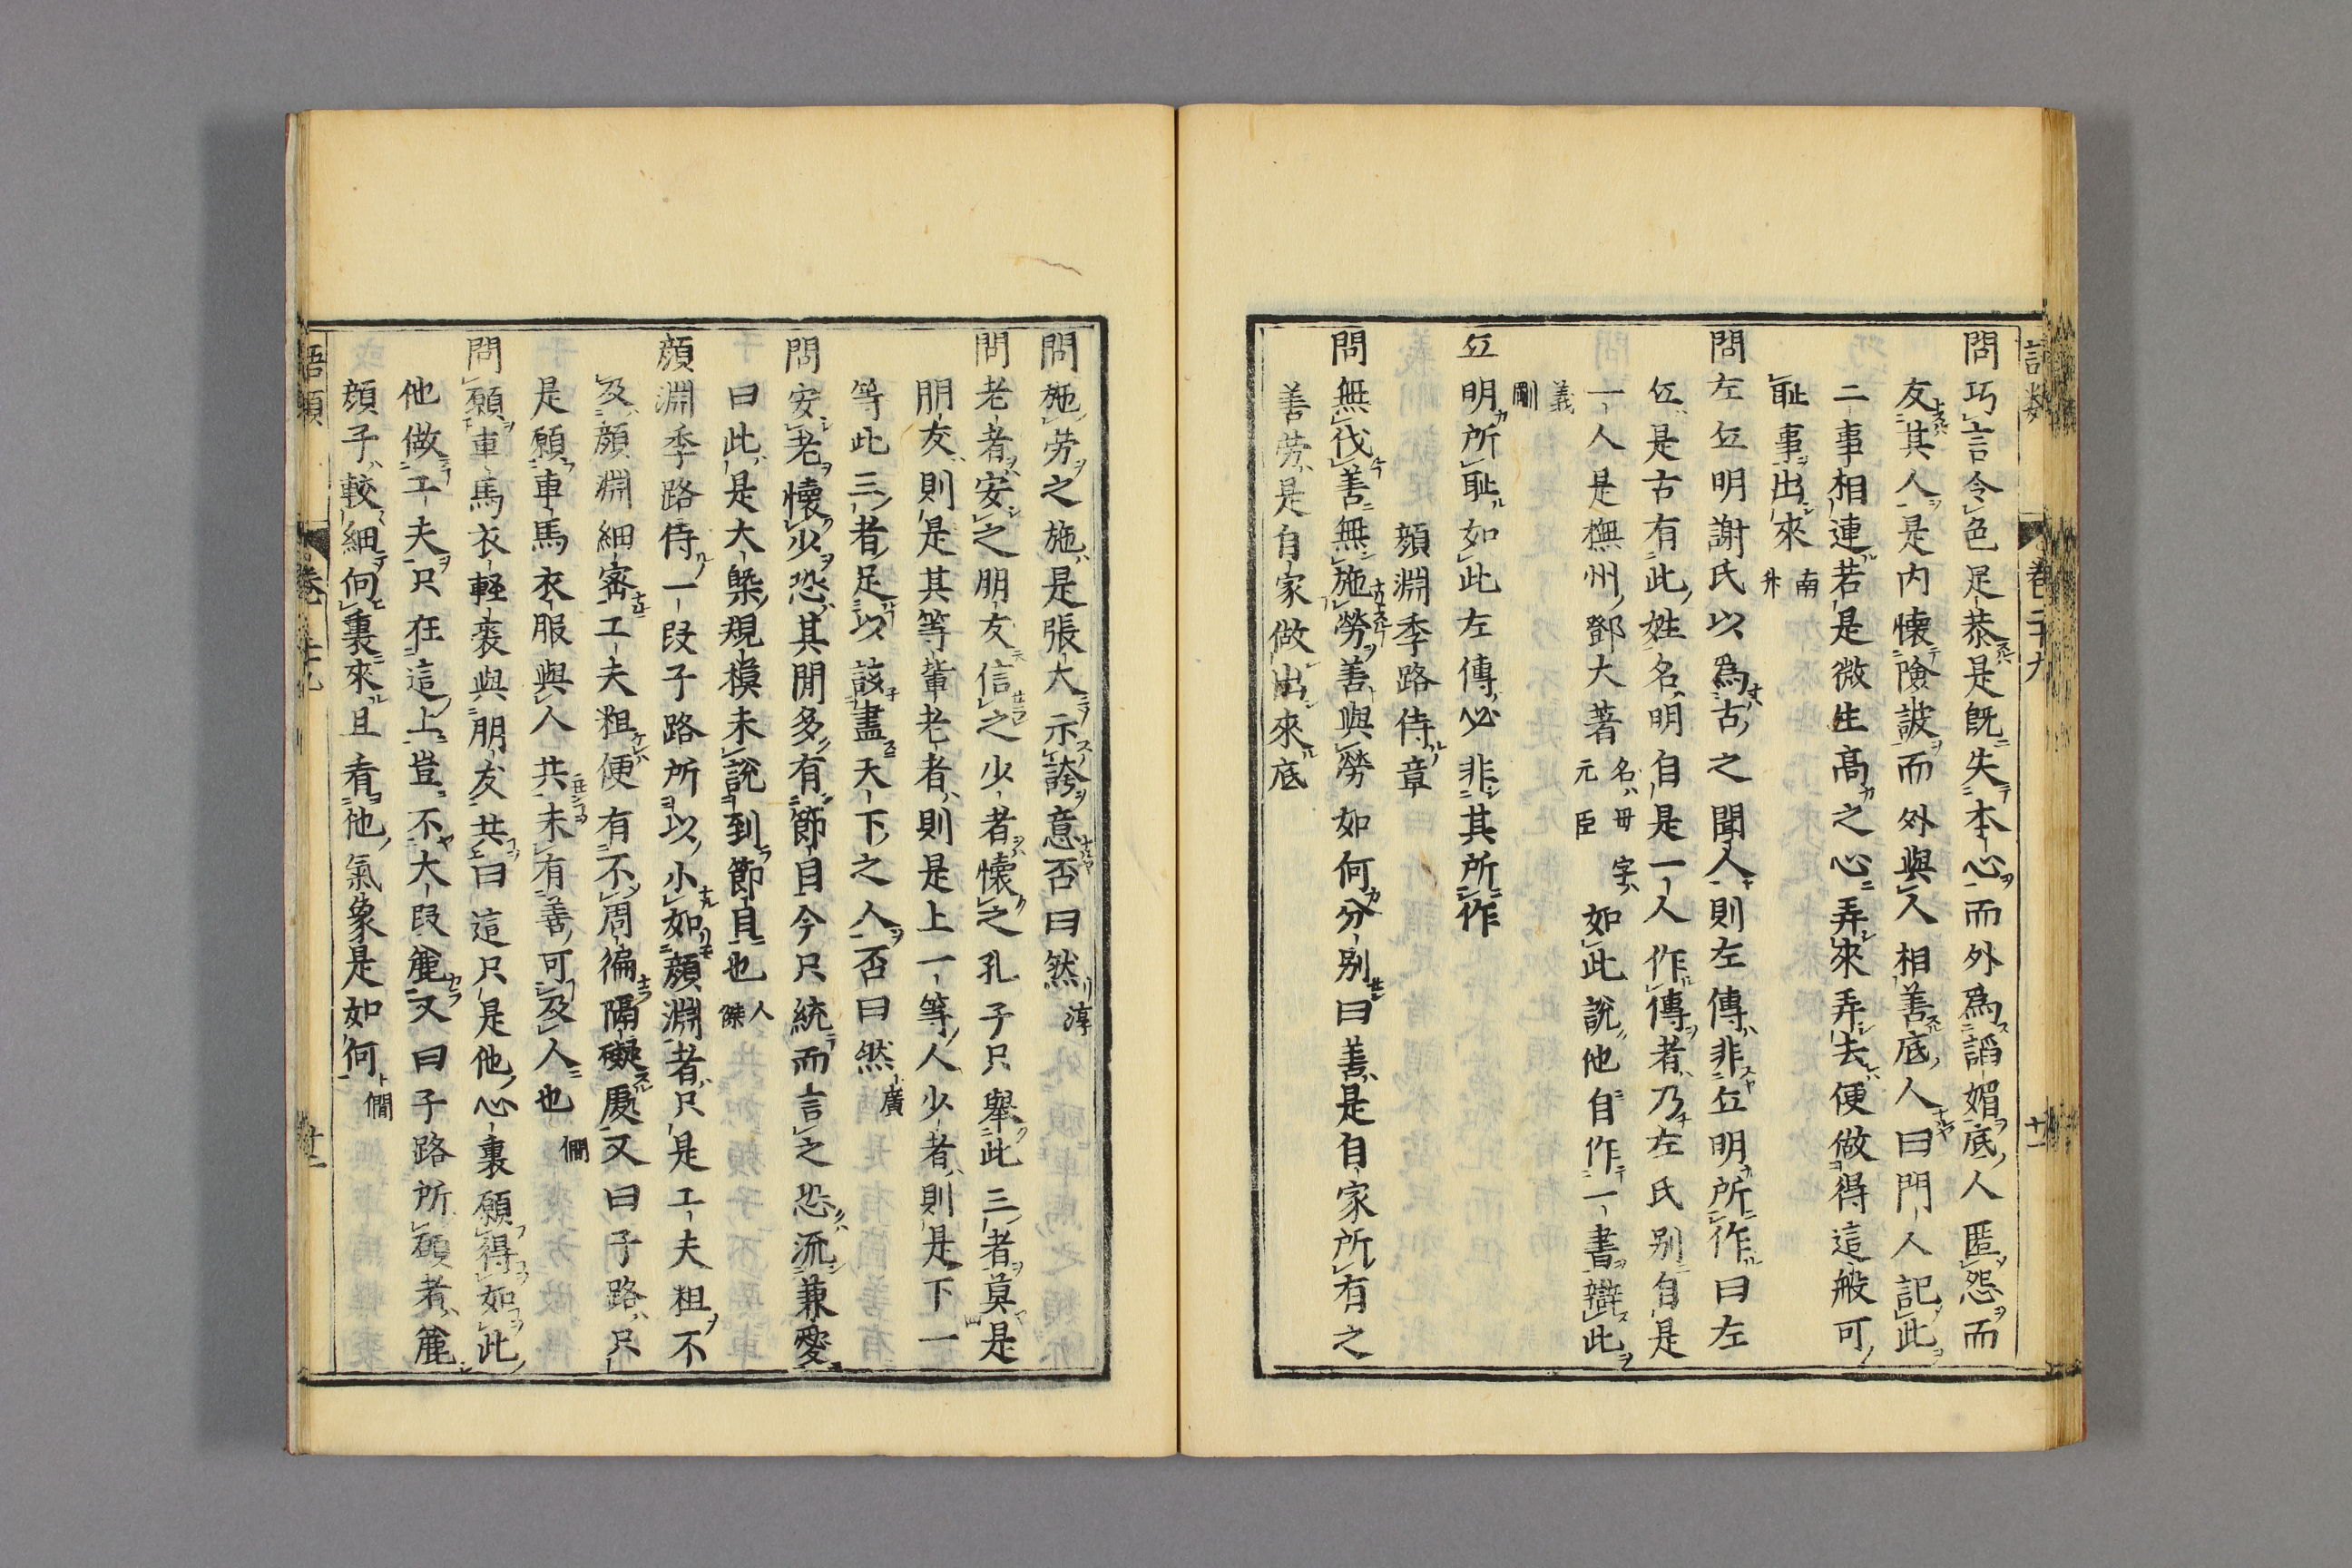 問巧言令色足恭是既失本心而外爲謟媚底人匿怨而
友其人是内懐險詖而外與人相善底人曰門人記此
二事相連若是微生高之心弄來弄去便做得這般可
恥事出來 南升
問左丘明謝氏以爲古之聞人則左傳非丘明所作曰左
丘是古有此姓名明自是一人作傳者乃左氏别自是
一人是撫州鄧大著 名丗字元臣 如此說他自作一書辯此
義剛
丘明所恥如此左傳必非其所作
顔淵季路侍章
問無伐善無施勞善與勞如何分别曰善是自家所有之
善劳是自家做出來底
問施劳之施是張大示誇意否曰然 淳
問老者安之朋友信之少者懐之孔子只舉此三者莫是
朋友則是其等輩老者則是上一等人少者則是下一
等此三者足以該盡天下之人否曰然 廣
問安老懐少恐其閒多有節目今只統而言之恐流兼愛
曰此是大槩規模未說到節目也 人傑
顔淵季路侍一段子路所以小如顔淵者只是工夫粗不
及顔淵細宻工夫粗便有不周徧隔礙處又曰子路只
是願車馬衣服與人共未有善可及人也 僩
問願車馬衣軽裘與朋友共曰這只是他心裏願得如此
他做工夫只在這上豈不大段麄又曰子路所願者麄
顔子較細向裏來且看他氣象是如何 僩
語類 卷二十九 十一